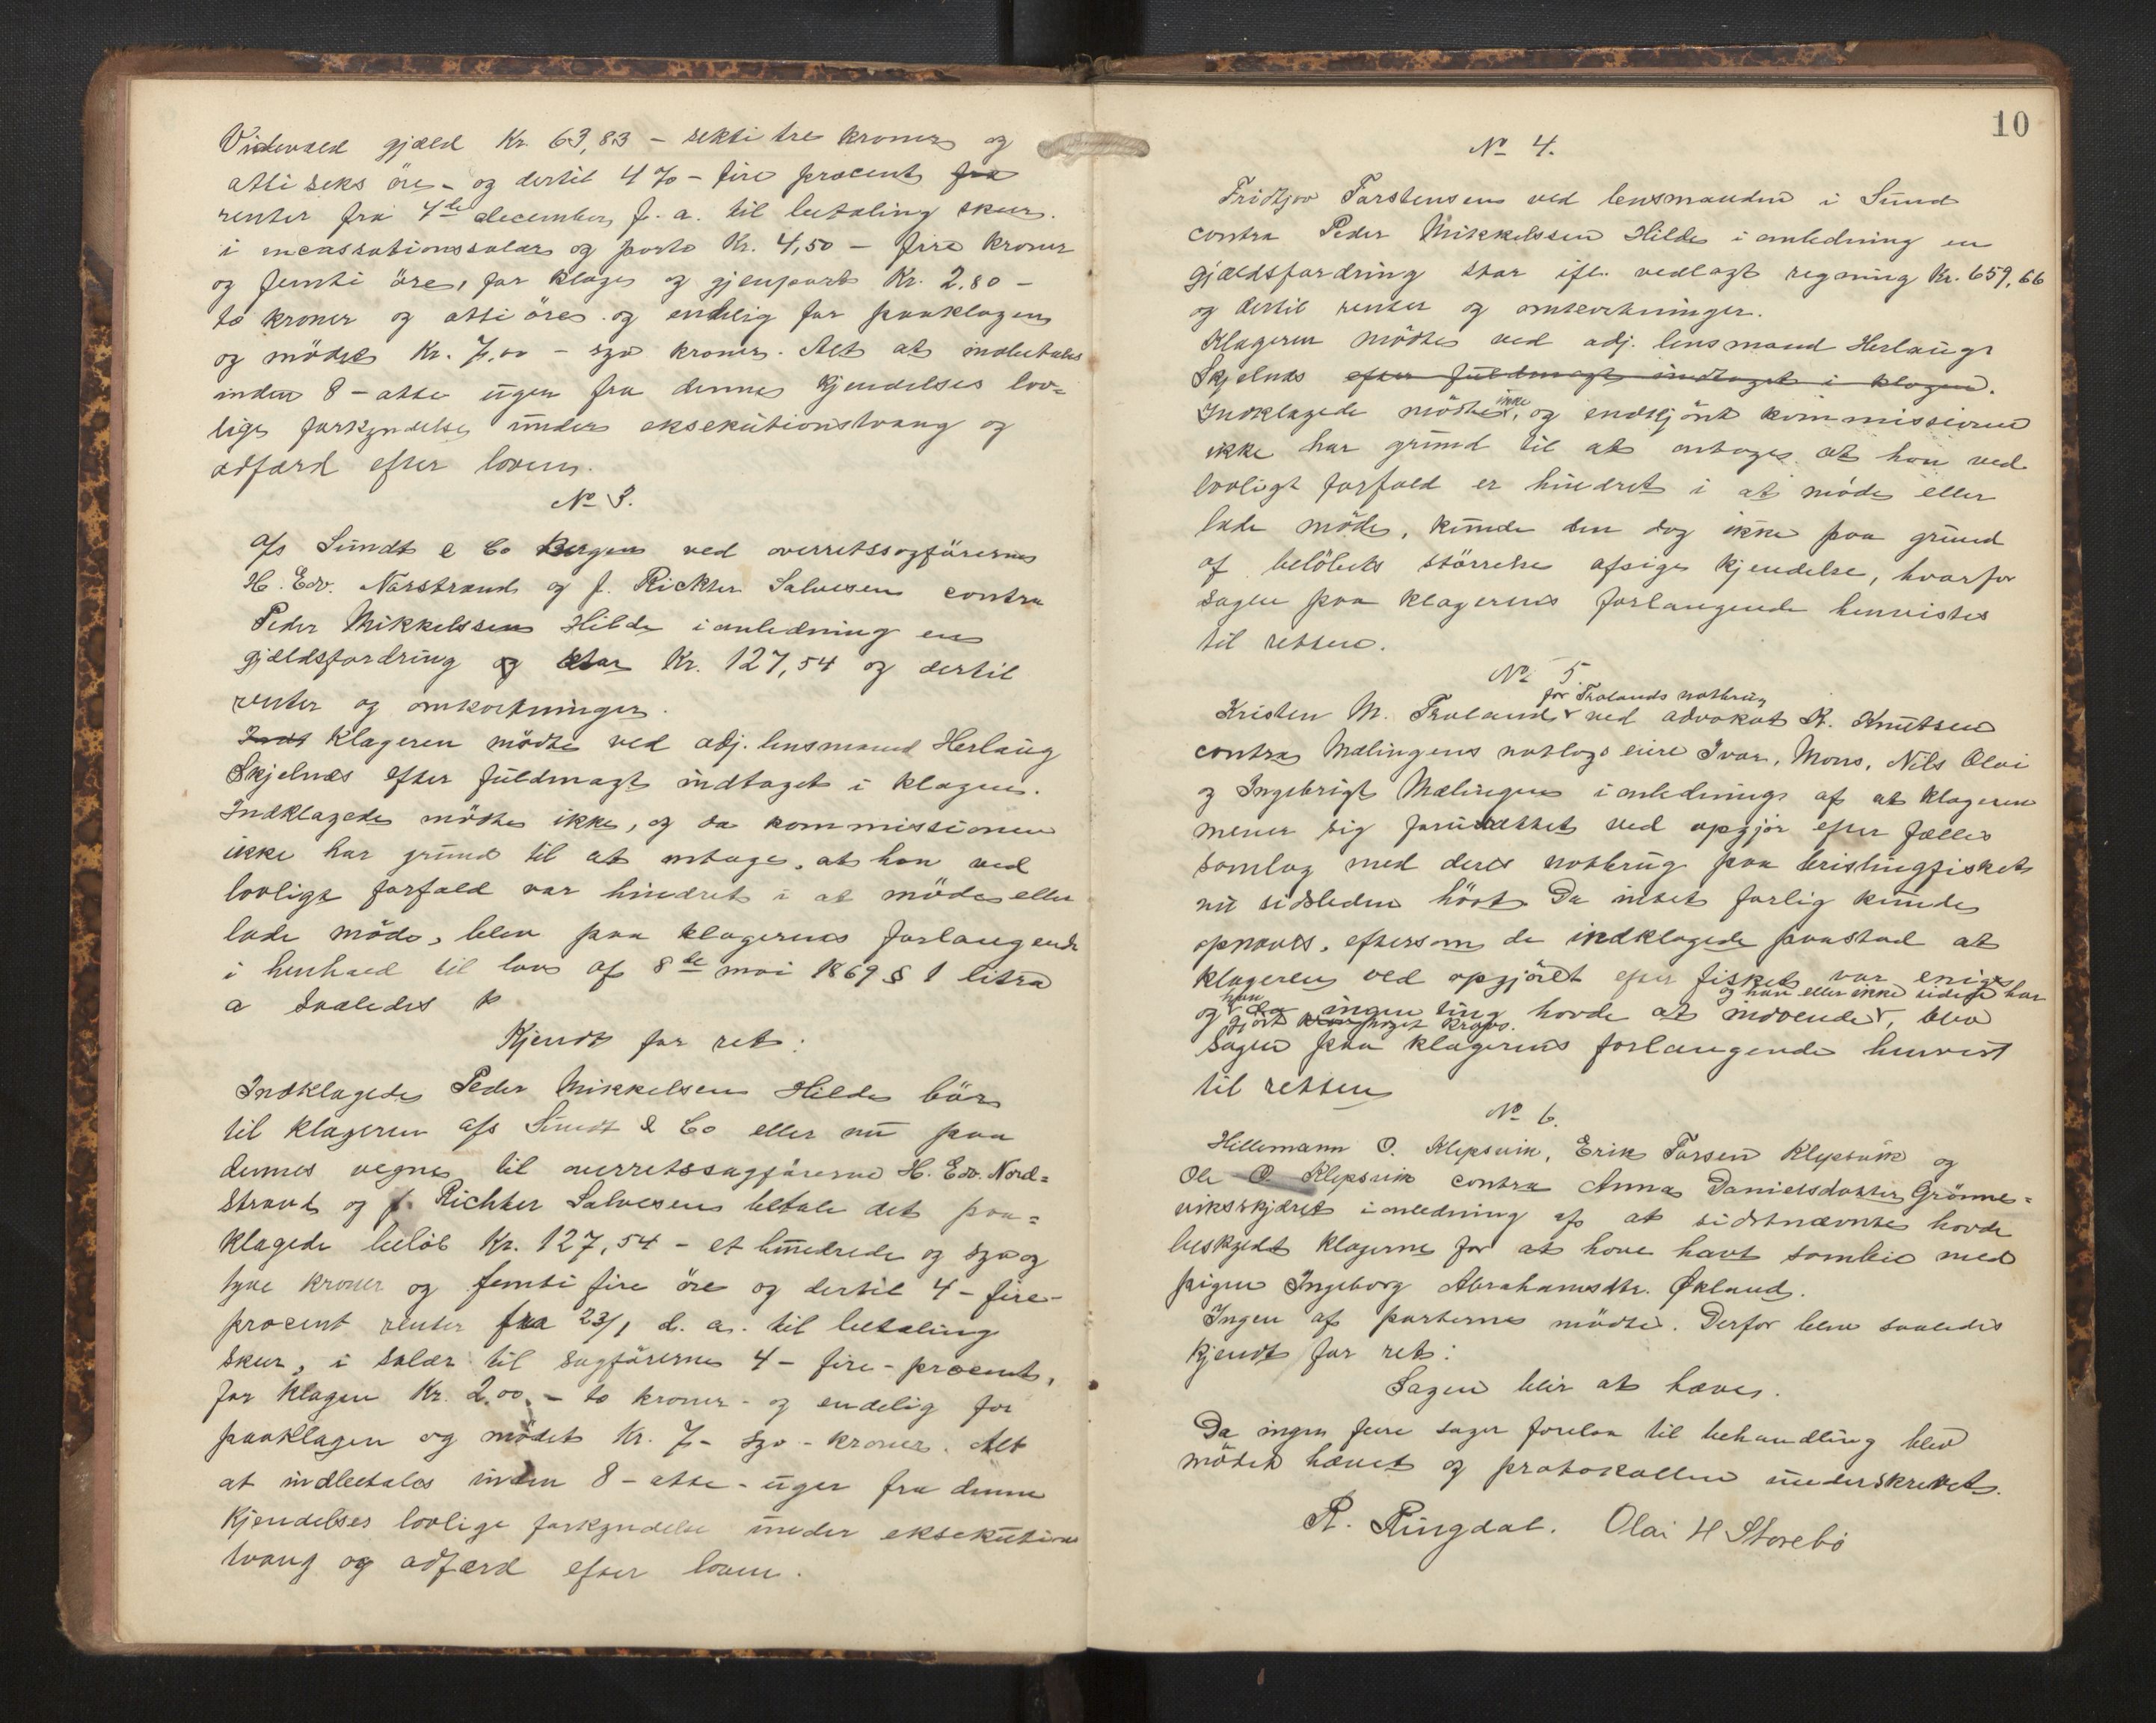 gjæld Kr. 63,83 - seksti tre kroner og
otti seks øre - og dertil 4 % - fire procent fra
renter fra 4de december f. a. til betaling skeer.
i incassationssalær og porto Kr. 4,50 - fire kroner
og femti öre, for klage og gjenpart Kr. 2.80 -
to kroner og otti öre og endelig for paaklagen
og mödet Kr. 7,00 - syv kroner. Alt at indbetales
inden 8 - otte uger fra dennes kjendelses lov=
lige forkyndelse under eksekutionstvang og
adfærd efter loven.
No 3.
A/s Sundt & Co Bergen ved overretssagförerne
H. Edv. Norstrand og J. Richter Salvesen contra
Peder Mikkelssen Hilde i anledning en
gjældsfordring og stor Kr. 127,54 og dertil
renter og omkostninger.
Klageren mödte ved adj. lensmand Herlaug
Skjelnes efter fuldmagt indtaget i klagen.
Indklagede mödte ikke, og da kommissionen
ikke har grund til at antage, at han ved
lovligt forfald var hindret i at möde eller
lade möde, blev paa klagerens forlangende
i henhold til lov af 8de mai 1869 § 1 litra
a saaledes k
Kjendt for ret:
Indklagede Peder Mikkelsen Hilde bör
til klageren A/s Sundt & Co eller nu paa
dennes vegne til overretssagförerne H. Edv. Nord=
strand og J. Richter Salvesen betale det paa=
klagede belöb Kr. 127,54 - et hundrede og syv og
tyve kroner og femti fire öre og dertil 4 - fire -
procent renter fra 23/1 d. a. til betaling
skeer, i salær til sagförerne 4 - fire - procent,
for klagen Kr. 2.00 - to kroner - og endelig for
paaklagen og mödet Kr. 7 - syv - kroner. Alt
at indbetales inden 8 - otte - uger fra denne
Kjendelses lovlige forkyndelse under eksekutions
tvang og adfærd efter loven.
10
No 4.
Fridtjov Torstensen ved lensmanden i Sund
contra Peder Mikkelssen Hilde i anledning en
gjældsfordring stor ifl. vedlagt regning Kr. 659,66
og dertil renter og omkostninger.
Klageren mödte ved adj. lensmand Herlaug
Skjelnes efter fuldmagt indtaget i klagen.
Indklagede mödte ikke, og endskjönt kommissionen
ikke har grund til at antage at han ved
lovligt forfald er hindret i at möde eller
lade möde, kunde den dog ikke paa grund
af belöbets störrelse afsige kjendelse, hvorfor
sagen paa klagerens forlangende henvistes
til retten.
No 5.
for Trolands notbrug
Kristen M. Troland ved advokat K. Knutsen
contra Mælingens notlags eiere Ivar, Mons, Nils Olai
og Ingebrigt Mælingen i anledning af at klageren
mener sig forurettet ved opgjör efter fælles
samlag med deres notbrug paa brislingfisket
nu sidstleden höst. Da intet forlig kunde
opnaaes, eftersom de indklagede paastod at
klageren ved opgjöret efter fisket var enig
og han eller ikke siden har
og han da ingen ting havde at indvende, blev
gjort noget krav.
sagen paa klagerens forlangende henvist
til retten
No 6.
Hillemann O. Klepsvik, Erik Torsen Klepsvik og
Ole O. Klepsvik contra Anna Danielsdatter Grönne=
viksskjæret i anledning af at sidstnævnte havde
beskyldt klagerne for at have havt samleie med
pigen Ingeborg Abrahamsdtr. Økland.
Ingen af parterne mödte. Derfor blev saaledes
kjendt for ret:
Sagen blir at hæves.
Da ingen flere sager forelaa til behandling blev
mödet hævet og protokollen underskrevet.
R. Ringdal. Olai H Storebö